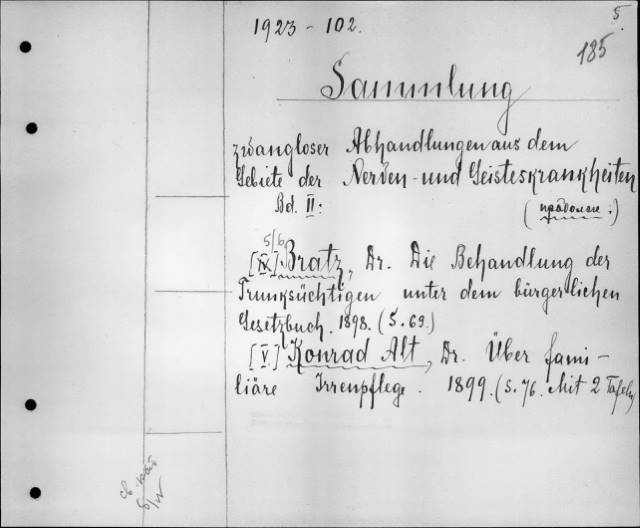 1923 - 102.
5.
185
Sammlung
zwangloser Abhandlungen aus dem
Gebiete der Nerven- und Geisteskrankheiten
Bd. II:
(продолж.:)
5/6
[IV] Bratz, Dr. Die Behandlung der
Trunksüchtigen unter dem bürgerlichen
Gesetzbuch. 1898. (S. 69.)
[V] Konrad Alt, Dr. Über fami-
liäre Irrenpflege. 1899. (S. 76. Mit 2 Tafeln)